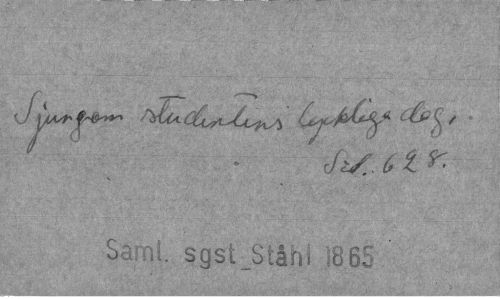 Sjungom studentens lyckliga dag,.
Sid. 628.
Saml. sgst_Ståhl 1865